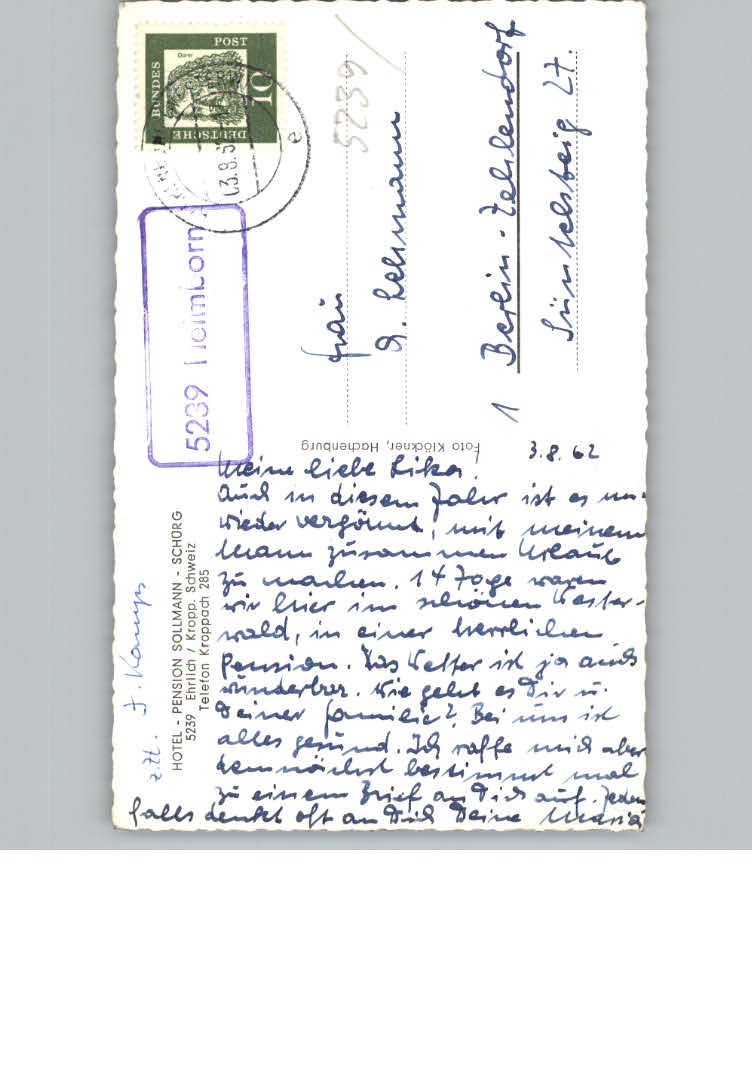 DEUTSCHE BUNDES POST
Dürer
10
03.8.6
e
5239 Heimborn
5239
Frau
Lehmann
1 Berlin-Zehlendorf
Süntelsteig 27.
Foto Klöckner, Hachenburg
HOTEL - PENSION SOLLMANN - SCHÜRG
5239 Ehrlich / Kropp. Schweiz
Telefon Kroppach 285
3.8.62
Meine liebe Lika!
Auch in diesem Jahr ist es uns
wieder vergönnt, mit meinem
Mann zusammen Urlaub
zu machen. 14 Tage waren
wir hier im schönen Wester-
wald, in einer herrlichen
Pension. Das Wetter ist ja auch
wunderbar. Wie geht es Dir u.
Deiner Familie? Bei uns ist
alles gesund. Ich raffe mich aber
demnächst bestimmt mal
zu einem Brief an Dich auf. Jeden
falls denkt oft an Dich Deine Maria